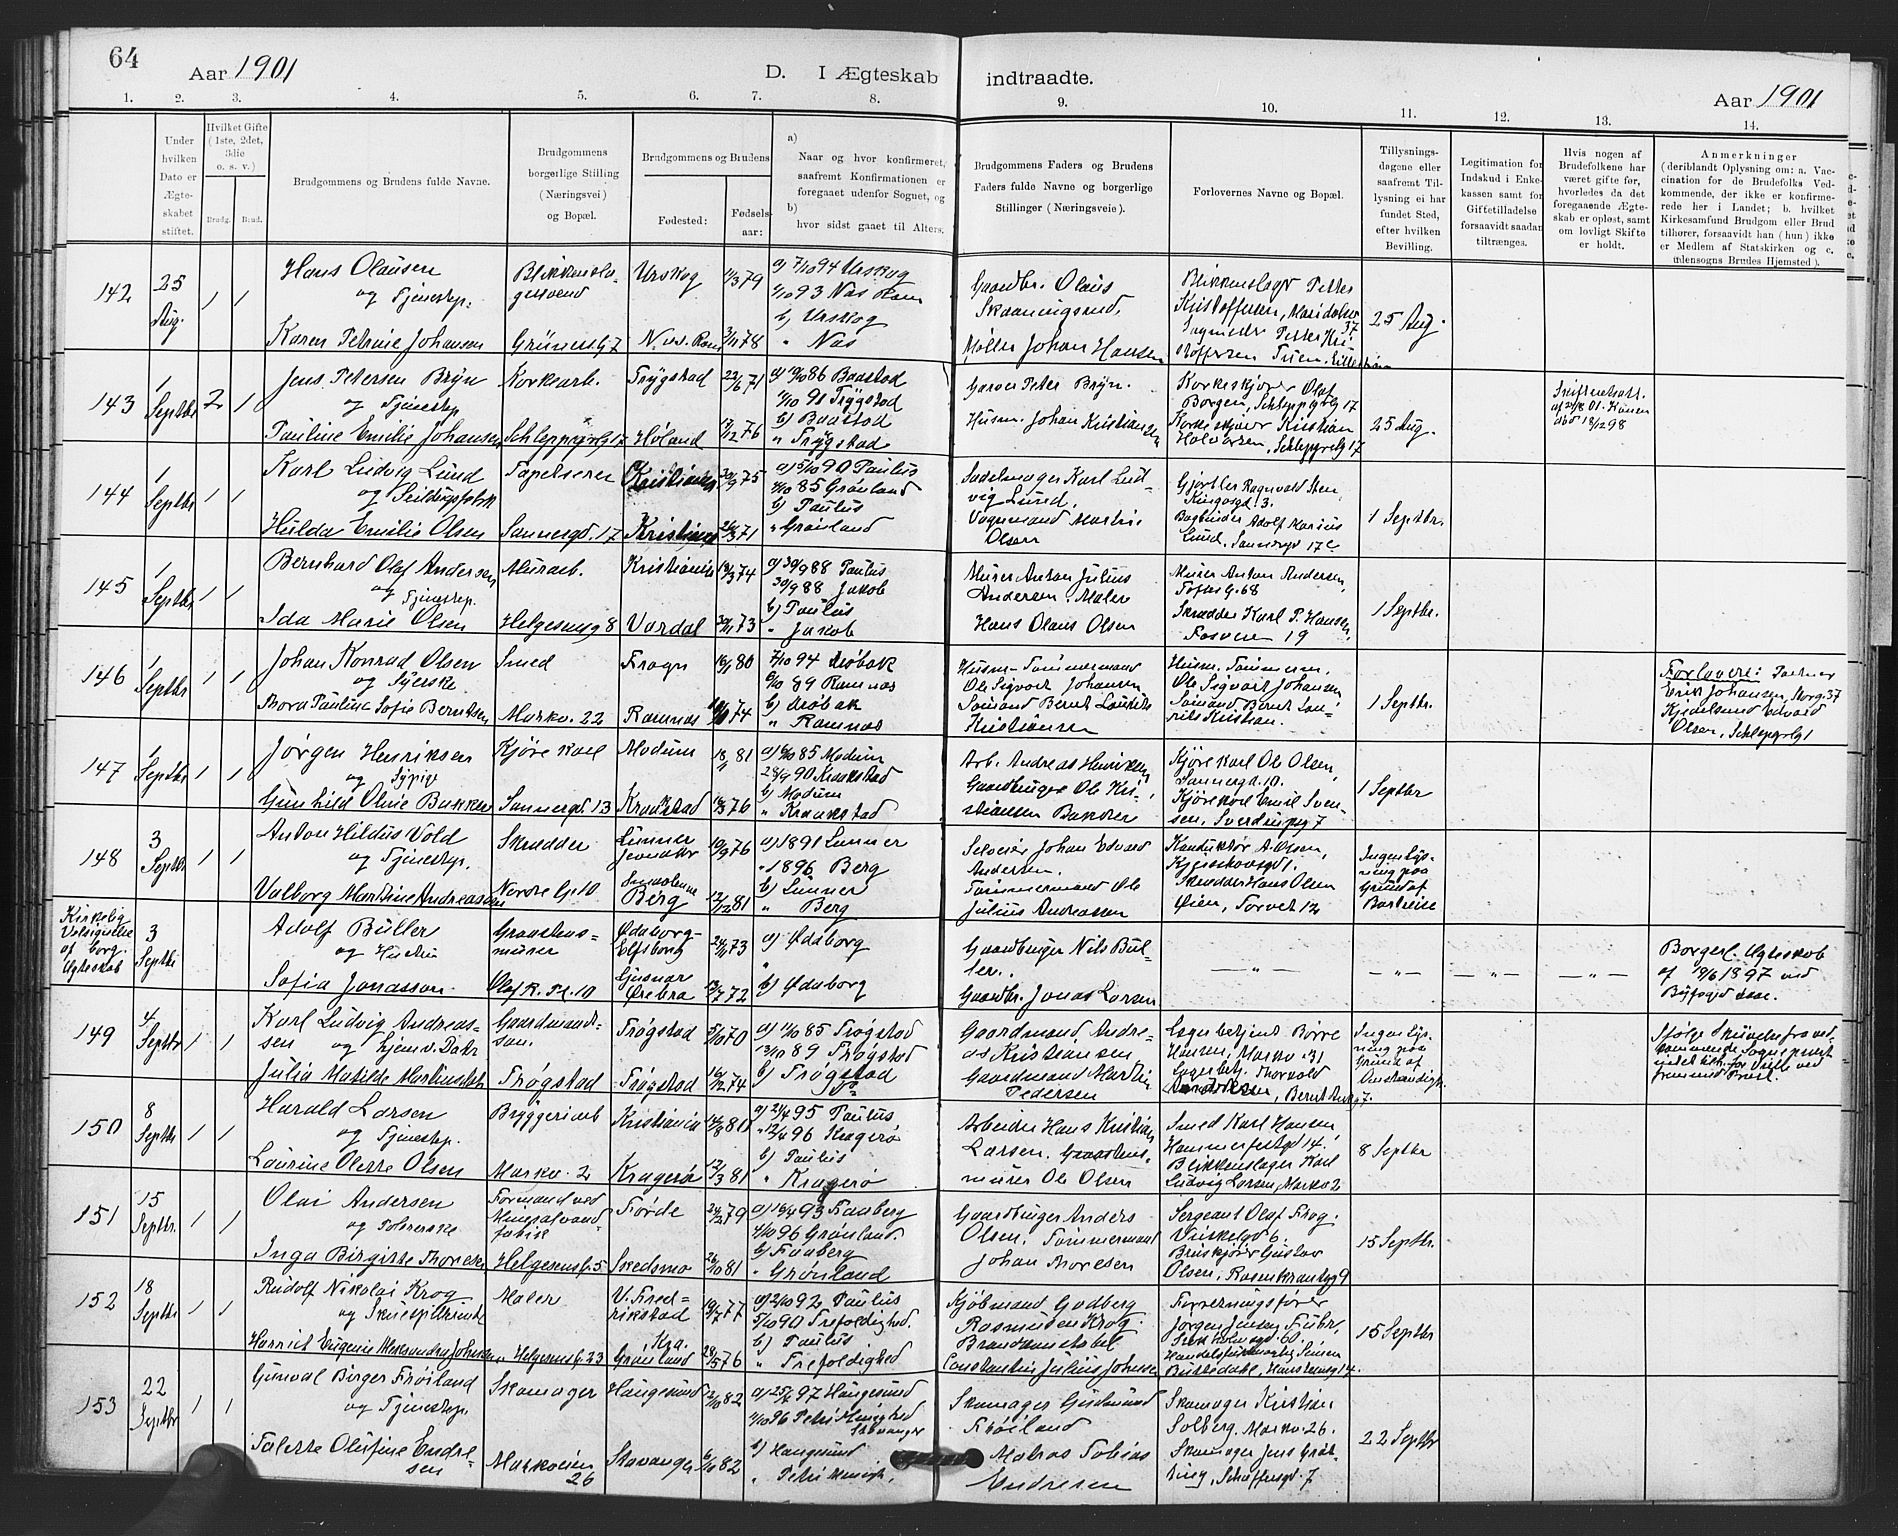 64
Aar 1901
D. I Ægteskab indtraadte.
Aar 1901
1. 2. 3. 4. 5. 6. 7. 8. 9. 10. 11. 12. 13. 14.
Under
hvilken
Dato er
Ægte-
skabet
stiftet.
Hvilket Gifte
(1ste, 2det,
3die
o. s. v.)
Brudg. Brud.
Brudgommens og Brudens fulde Navne.
Brudgommens
borgerlige Stilling
(Næringsvei)
og Bopæl.
Brudgommens og Brudens
Fødested:
Fødsels-
aar:
a)
Naar og hvor konfirmeret,
saafremt Konfirmationen er
foregaaet udenfor Sognet, og
b)
hvor sidst gaaet til Alters.
Brudgommens Faders og Brudens
Faders fulde Navne og borgerlige
Stillinger (Næringsveie).
Forlovernes Navne og Bopæl.
Tillysnings-
dagene eller
saafremt Til-
lysning ei har
fundet Sted,
efter hvilken
Bevilling.
Legitimation for
Indskud i Enke-
kassen samt for
Giftetilladelse
forsaavidt saadan
tiltrænges.
Hvis nogen af
Brudefolkene har
været gift før,
hvorledes da det
foregaaende Ægte-
skab er opløst, samt
om lovligt Skifte
er holdt.
Anmerkninger
(deriblandt Oplysning om: a. Vac-
cination for de Brudefolks Ved-
kommende, der ikke er konfirme-
rede her i Landet; b. hvilket
Kirkesamfund Brudgom eller Brud
tilhører, forsaavidt han (hun) ikke
er Medlem af Statskirken og c.
udensogns Brudes Hjemsted).
142
25
Aug.
1 1
Hans Olausen
og Tjenestep.
Karen Petrine Johansen
Blikkensla-
gersvend
Grünersg. 7
Urskog
11/3 79
a) 7/10 94 Urskog
1/10 93 Nas Rom
b) Urskog
" Nas
Gaardbr. Olaus
Skaaningsrud.
Møller Johan Hansen
Blikkenslager Petter
25 Aug.
143
1
Septbr
2 1
Jens Petersen Bryn
og Tjenestep
Pauline Emilie Johansen
Korkearb.
Schleppgrlg 17
Trygstad
Høland
22/6 71
12/12 76
86 Baastad
91 Trygstad
b) Baastad
" Trygstad
Garver Peter Bryn.
Husm. Johan Kristiansen
Korkeskjører Olaf
Borgen, Schleppgrlg 17
Korkeskjører Kristian
Halvorsen, Schleppgrlg 17
25 Aug.
144
1
Septbr
1 1
Karl Ludvig Lund
og Seildugsfabr
Hulda Emilie Olsen
Tapetserer
Sannergd. 17
Kristiania
Kristiania
20/9 75
a) 5/10 90 Paulus
4/10 85 Grønland
b) Paulus
" Grønland
Sadelmager Karl Lud-
vig Lund.
Vognmand Martin
Olsen
Gjørtler Ragnvald Sten
Kingosgd. 3.
Bogbinder Adolf Marius
Lund, Sannergd 17c
1 Septbr.
145
1
Septbr
1 1
Bernhard Olaf Andersen
og Tjenestep.
Ida Marie Olsen
Murarb.
Helgesensg 8
Kristiania
Vardal
a) 30/9 88 Paulus
30/9 88 Jakob
b) Paulus
" Jakob
Murer Anton Julius
Andersen. Maler
Hans Olaus Olsen
Murer Anton Andersen,
Toftesg. 68
Skrædder Karl P. Hansen,
Fosvere 19
1 Septbr.
146
1
Septbr
1 1
Johan Konrad Olsen
og Syerske
Thora Paulina Sofie Berntsen
Smed
Markv. 22
Frogn
Ramnæs
16/1 80
7/10 94 Drøbak
6/10 89 Ramnæs
b) Drøbak
" Ramnæs
Husm. Tømmermand
Ole Sigvart Johansen
Sømand Bernt Laurits
Kristiansen
Husm. Tømmerm.
Ole Sigvart Johansen
Sømand Bernt Lau-
rits Kristian.
1 Septbr.
Forlovere:
Erik Johansen, Norg. 37
Kjedelsmed Edvard
Olsen, Schleppgrlg 1
147
1
Septbr
1 1
Jørgen Henriksen
og Sypige
Gunhild Oline Bakken
Kjørekarl
Sannergd. 13
Modum
Kraakstad
18/1 81
a) 4/10 85 Modum
28/9 90 Kraakstad
b) Modum
" Kraakstad
Arb. Andreas Henriksen
Gaardbruger Ole Kri-
stiansen Bakken
Kjørekarl Ole Olsen,
Sannergd. 10.
Kjørekarl Emil Sven-
sen, Sverdrupsg 7
1 Septbr
148
3
Septbr
1 1
Anton Hildus Vold
og Tjenestep.
Valborg Marthine Andreassen
Skrædder
Nordre G. 10
Lunner
Jevnaker
Smaalenene
Berg
10/9 76
12/12 81
a) 1891 Lunner
" 1896 Berg
b) Lunner
" Berg
Selveier Johan Edvard
Andersen.
Tømmermand Ole
Julius Andreassen
Konduktør A. Olsen,
Skrædder Hans Olsen
Øien, Torvet 12
Ingen Lys-
ning paa
Grund af
Bortreise
Kirkelig
Velsignelse
af borg.
Ægteskab
3
Septbr
Adolf Büller
og Hustru
Sofia Jonasson.
Graastens-
murer
Olaf R. Pl. 10
Ødeborg
Elfsborg
Örebro
24/11 73
13/7 72
a) Ødeborg
"
b) Ødeborg
Gaardbruger Nils Bül-
ler.
Gaardbr. Jonas Larsen
— " — — " — — " — — " —
Borgerl. Ægteskab
af 19/6 1897 ved
Byfoged
149
4
Septbr
1 1
Karl Ludvig Andreas-
sen og hjemv. Datr
Julia Matilde Martinsdatr
Gaardmands-
søn.
Trøgstad
Trøgstad
Trøgstad
5/10 70
16/12 74
a) 11/10 85 Trøgstad
13/10 89 Trøgstad
b) Trøgstad
Do
Gaardmand Andre-
as Kristiansen
Gaardmand Martin
Pedersen
Lagerbetjent Børre
Hansen, Markv. 31
Lagerbetj. Thorvald
Ingen Lys-
ning paa
Grund af
150
8
Septbr
1 1
Harald Larsen
og Tjenestep.
Laurine Olette Olsen
Bryggeriarb
Markv. 2
Kristiania
Kragerø
14/8 81
12/3 81
a) 21/4 95 Paulus
" 12/4 96 Kragerø
b) Paulus
" Kragerø
Arbeider Hans Kristian
Larsen. Graastens-
murer Ole Olsen
Smed Karl Hansen
Hammerfestgd 14.
Blikkenslager Karl
Ludvig Larsen, Markv 2
8 Septbr
151
15
Septbr.
1 1
Olai Andersen
og Tobererske
Inga Birgitte Thoresen
Formand ved
Mineralvand-
fabrik
Helgesensg. 5
Førde
Skedsmo
24/12 79
26/10 81
a) 16/4 93 Faaberg
4/10 96 Grønland.
b) Faaberg
" Grønland
Gaardbruger Anders
Olsen, Tømmermand
Johan Thoresen
Sergeant Olaf Krog.
Bruskjører Gustav
Olsen, Rosenkrantzg 9
15 Septbr.
152
18
Septbr
1 1
Rudolf Nikolai Krog
og Skuespillerinde
Harriet Eugenie Aleksandra Johnsen
Maler
Helgesensg. 23
V. Fred-
rikstad
Kra.
Grønland
10/7 77
28/5 76
a) 2/10 92 Paulus
5/10 90 Trefoldighed.
b) Paulus
" Trefoldighed
Kjøbmand Godberg
Rasmussen Krog.
Brandkonstabel
Constantin Julius Johnsen
Forretningsfører
Jørgen Jensen Fuhr,
Stockholmsgd. 60.
15 Septbr
153
22
Septbr
1 1
Gunval Birger Frøiland
og Tjenestep.
Talette Olufine Endre-
sen
Skomager
Markveien
26
Haugesund
Stavanger
2/10 82
6/10 82
a) 25/4 97 Haugesund
11/10 96 Petri Menighed
Stavanger
b) Haugesund
" Petri Menigh.
Skomager Gudmund
Frøiland
Matros Tobias
Endresen
Skomager Kristian
Solberg, Markv. 26.
Skomager Jens Grøt-
ting, Schaffersgd. 7
22 Septbr